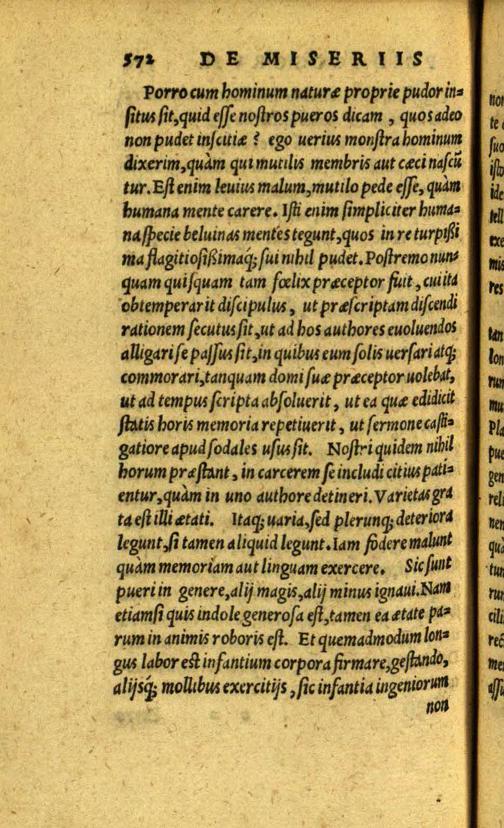 572 DE MISERIIS
Porro cum hominum naturæ proprie pudor in=
ſitus ſit,quid eſſe noſtros pueros dicam , quos adeo
non pudet inſcitiæ ? ego uerius monſtra hominum
dixerim,quàm qui mutilis membris aut cæci naſcũ
tur.Eſt enim leuius malum,mutilo pede eſſe, quàm
humana mente carere. Iſti enim ſimpliciter huma=
na ſpecie beluinas mentes tegunt,quos in re turpißi
ma flagitioſißimaq; ſui nihil pudet.Poſtremo nun=
quam quiſquam tam fœlix præceptor fuit, cui ita
obtemperarit diſcipulus, ut præſcriptam diſcendi
rationem ſecutus ſit,ut ad hos authores euoluendos
alligari ſe paſſus ſit,in quibus eum ſolis uerſari atq;
commorari,tanquam domi ſuæ præceptor uolebat,
ut ad tempus ſcripta abſoluerit, ut ea quæ edidicit
ſtatis horis memoria repetiuerit, ut ſermone caſti=
gatiore apud ſodales uſus ſit. Noſtri quidem nihil
horum præſtant, in carcerem ſe includi citius pati=
entur,quàm in uno authore detineri.Varietas gra
ta eſt illi ætati. Itaq; uaria,ſed plerunq; deteriora
legunt,ſi tamen aliquid legunt.Iam fodere malunt
quàm memoriam aut linguam exercere. Sic ſunt
pueri in genere,alij magis,alij minus ignaui.Nam
etiamſi quis indole generoſa eſt,tamen ea ætate pa=
rum in animis roboris eſt. Et quemadmodum lon=
gus labor eſt infantium corpora firmare,geſtando,
alijsq́; mollibus exercitijs ,ſic infantia ingeniorum
non